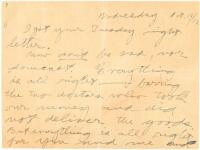 Wednesday
I got your Tuesday night
letter.
Now don't be sad, or
downcast. Everything
is all right — barring
the two doctors who took
our money and did
not deliver the goods.
But everything is all right
for you and me and